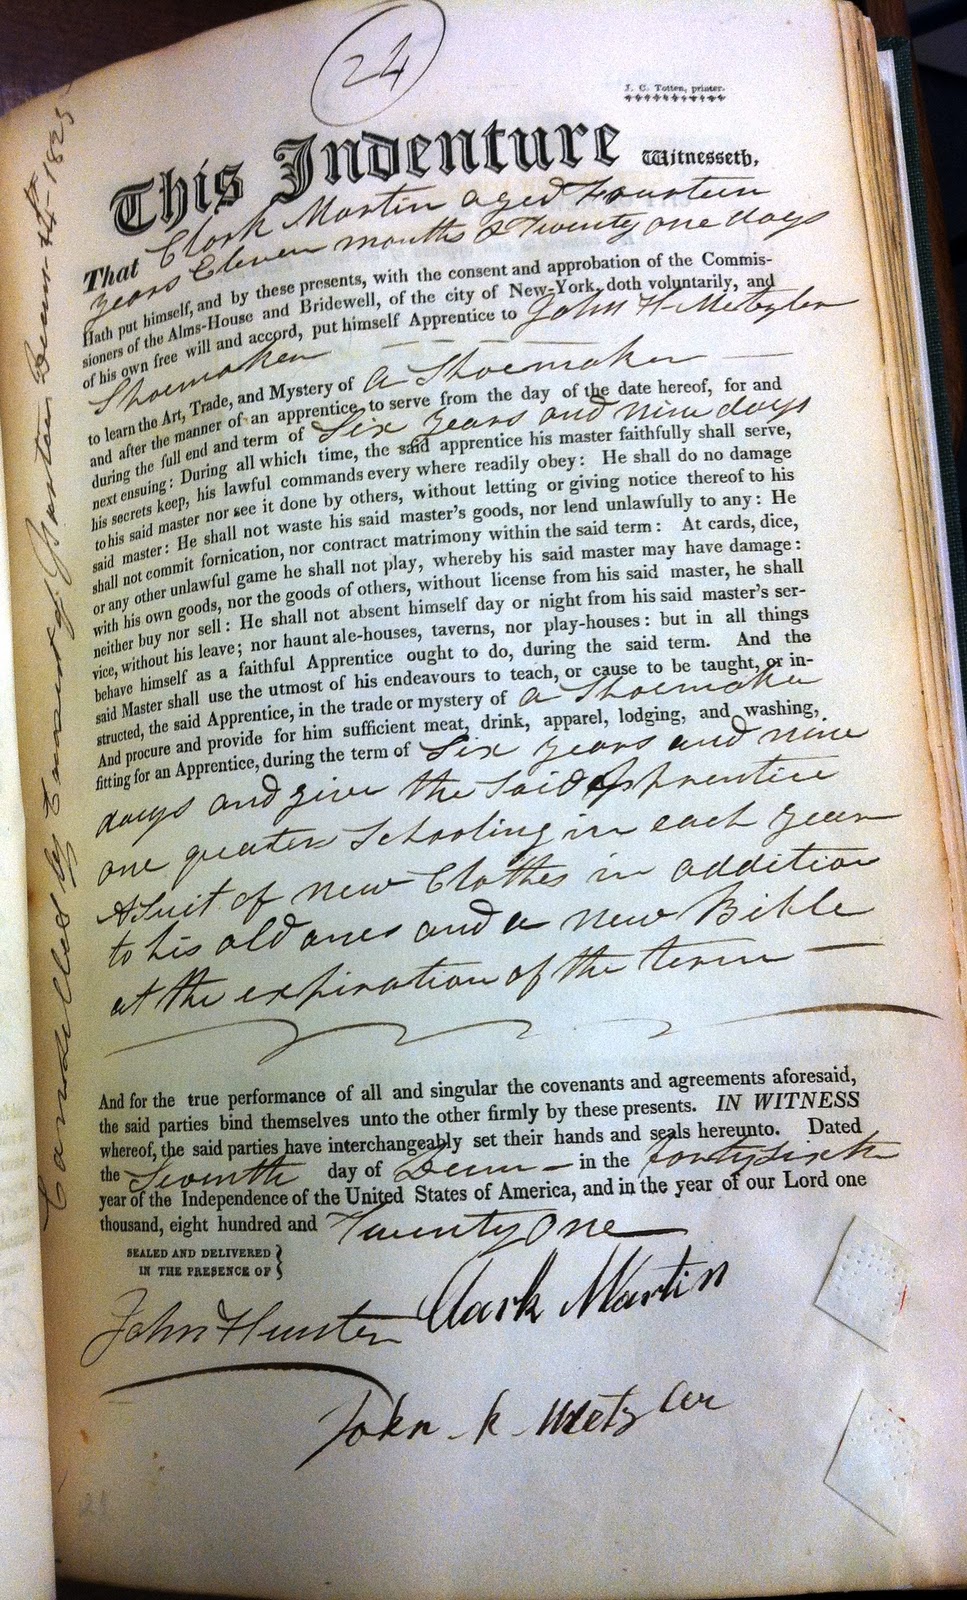 24
J. C. Totten, printer.
This Indenture Witnesseth,
That Clark Martin aged Fourteen
years Eleven months & Twenty one days
Hath put himself, and by these presents, with the consent and approbation of the Commis-
sioners of the Alms-House and Bridewell, of the city of New-York, doth voluntarily, and
of his own free will and accord, put himself Apprentice to John H Metzler
Shoemaker
to learn the Art, Trade, and Mystery of a Shoemaker
and after the manner of an apprentice to serve from the day of the date hereof, for and
during the full end and term of Six years and nine days
next ensuing: During all which time, the said apprentice his master faithfully shall serve,
his secrets keep, his lawful commands every where readily obey: He shall do no damage
to his said master nor see it done by others, without letting or giving notice thereof to his
said master: He shall not waste his said master's goods, nor lend unlawfully to any: He
shall not commit fornication, nor contract matrimony within the said term: At cards, dice,
or any other unlawful game he shall not play, whereby his said master may have damage:
with his own goods, nor the goods of others, without license from his said master, he shall
neither buy nor sell: He shall not absent himself day or night from his said master's ser-
vice, without his leave; nor haunt ale-houses, taverns, nor play-houses: but in all things
behave himself as a faithful Apprentice ought to do, during the said term. And the
said Master shall use the utmost of his endeavours to teach, or cause to be taught, or in-
structed, the said Apprentice, in the trade or mystery of a Shoemaker
And procure and provide for him sufficient meat, drink, apparel, lodging, and washing,
fitting for an Apprentice, during the term of Six years and nine
days and give the Said Apprentice
one quarter Schooling in each year
A Suit of new Clothes in addition
to his old ones and a new Bible
at the expiration of the term
And for the true performance of all and singular the covenants and agreements aforesaid,
the said parties bind themselves unto the other firmly by these presents. IN WITNESS
whereof, the said parties have interchangeably set their hands and seals hereunto. Dated
the Seventh day of Decm in the forty sixth
year of the Independence of the United States of America, and in the year of our Lord one
thousand, eight hundred and Twenty One
SEALED AND DELIVERED
IN THE PRESENCE OF
John Hunter Clark Martin
John H Metzler
Cancelled by Consent of Parties Decm 4th 1823